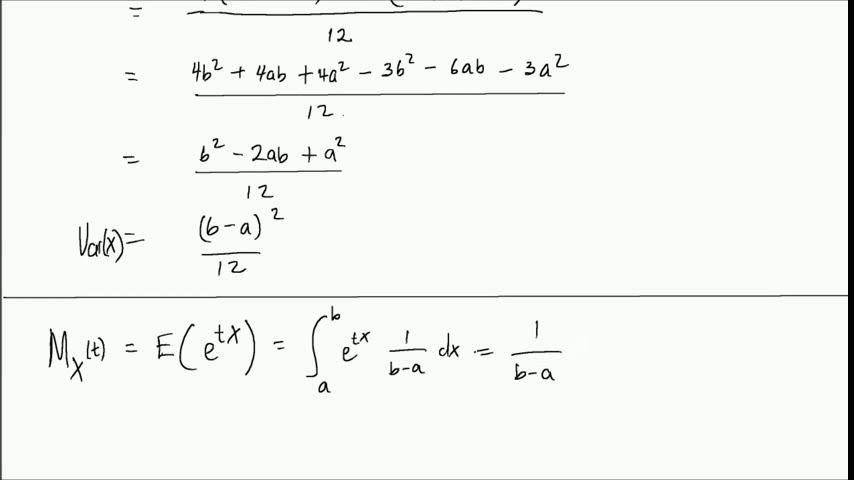 =
12
= 4b² + 4ab + 4a² − 3b² − 6ab − 3a²
12
= b² − 2ab + a²
12
Var(X) = (b−a)²
12
M_X(t) = E(e^{tX}) = ∫_a^b e^{tx} 1/(b−a) dx = 1/(b−a)